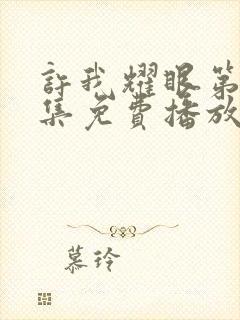 許我耀眼第
集免費播放
慕玲